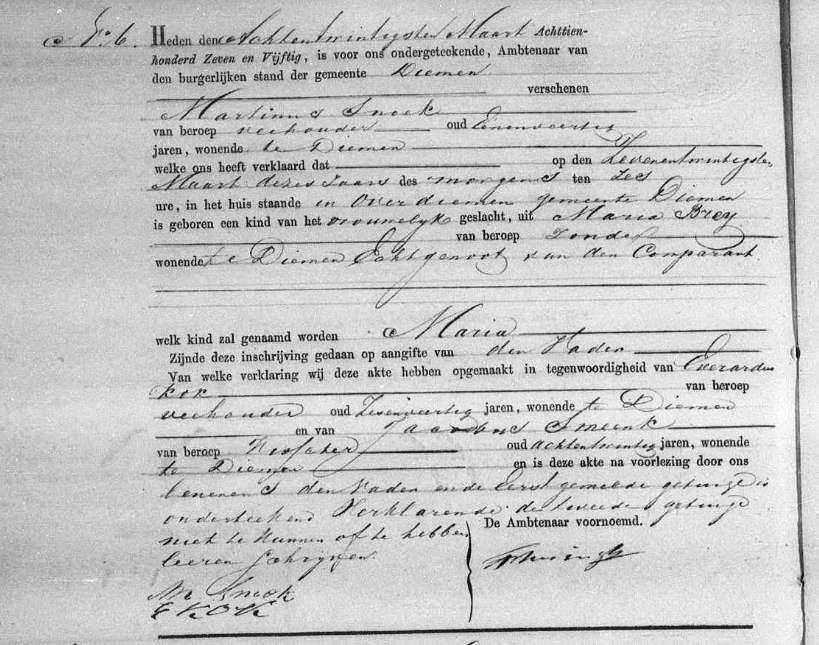 No. 6. Heden den Achtentwintigsten Maart Achttien-
honderd Zeven en Vijftig, is voor ons ondergeteekende, Ambtenaar van
den burgerlijken stand der gemeente Diemen
verschenen
Martinus Snoek
van beroep veehouder oud Eenenveertig
jaren, wonende te Diemen
welke ons heeft verklaard dat op den Zevenentwintigsten
Maart dezes Jaars des morgens ten Zes
ure, in het huis staande in Overdiemen gemeente Diemen
is geboren een kind van het vrouwelyk geslacht, uit Maria Brey
van beroep Zonder
wonende te Diemen Echtgenoot van den Comparant.
welk kind zal genaamd worden Maria
Zijnde deze inschrijving gedaan op aangifte van den Vader
Van welke verklaring wij deze akte hebben opgemaakt in tegenwoordigheid van Everardus
Kok van beroep
veehouder oud Zevenveertig jaren, wonende te Diemen
en van Jacobus Smeenk
van beroep Visscher oud achtentwintig jaren, wonende
te Diemen en is deze akte na voorlezing door ons
benevens den Vader en de Eerstgemelde getuige is
onderteekend Verklarende de tweede getuige
niet te kunnen of te hebben
leeren Schryven. De Ambtenaar voornoemd.
M. Snoek
E KOK